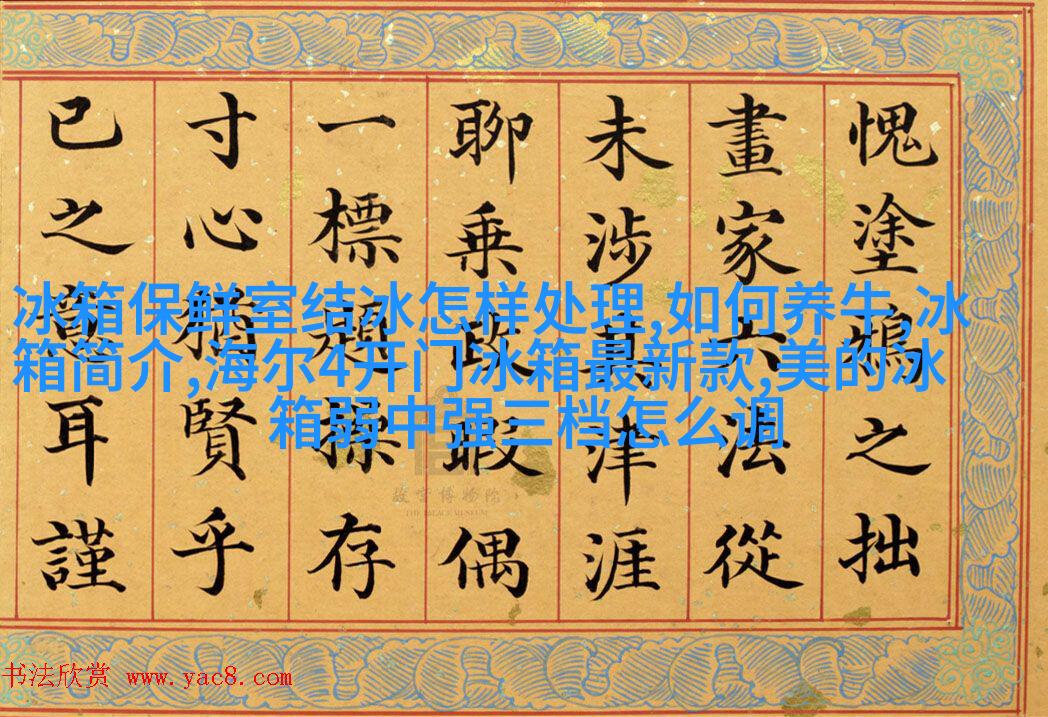 愧塗鴉之拙
畫家六法從
未涉其津涯
聊乘政暇偶
一標題操存
寸心猶賢乎
已之意耳謹
冰箱保鲜室结冰怎样处理,如何养牛,冰
箱简介,海尔4开门冰箱最新款,美的冰
箱弱中强三档怎么调
故宫博物院
THE PALACE MUSEUM
书法欣赏 www.yac8.com